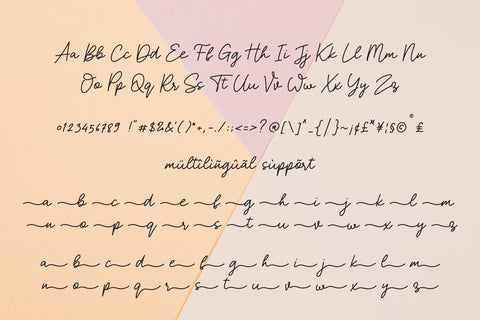 Aa Bb Cc Dd Ee Ff Gg Hh Ii Jj Kk Ll Mm Nn
Oo Pp Qq Rr Ss Tt Uu Vv Ww Xx Yy Zz
0123456789 !"#$&&'()*+,-./:;<=>?@[\]^_{|}~¡¢£¤¥¦§©®₤
mültilíñgûãl sùppõrt
a b c d e f g h i j k l m
n o p q r s t u v w x y z
a b c d e f g h i j k l m
n o p q r s t u v w x y z